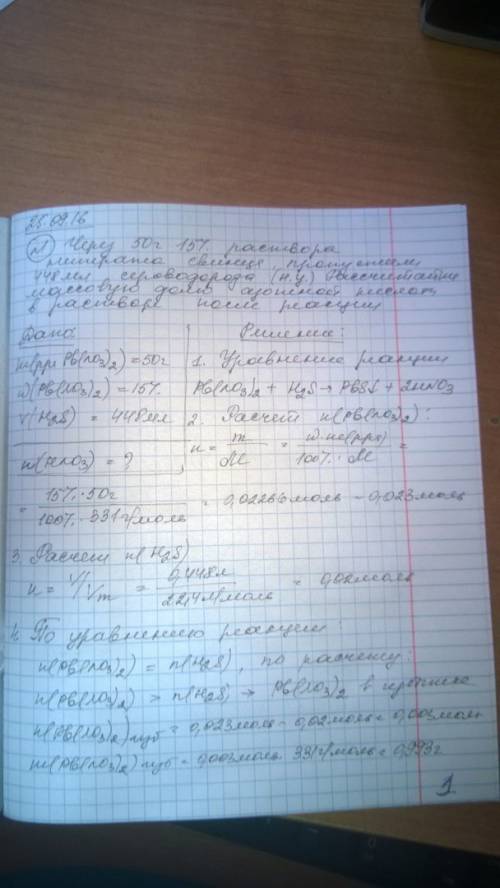 25.09.16
№1 Через 50г 15% раствора
нитрата свинца пропустили
448мл сероводорода (н.у.) Рассчитайте
массовую долю азотной кислоты
в растворе после реакции
Дано: Решение:
m(р-ра Pb(NO3)2) = 50г 1. Уравнение реакции
W(Pb(NO3)2) = 15% Pb(NO3)2 + H2S → PbS↓ + 2HNO3
V(H2S) = 448мл 2. Расчёт n(Pb(NO3)2):
w(HNO3) = ? n = m/M = w·m(р-ра)/100%·M =
= 15%·50г/100%·331г/моль = 0,02266моль ~ 0,023моль
3. Расчёт n(H2S)
n = V/Vm = 0,448л/22,4л/моль = 0,02моль
4. По уравнению реакции:
n(Pb(NO3)2) = n(H2S), по расчёту:
n(Pb(NO3)2) > n(H2S) → Pb(NO3)2 в
n(Pb(NO3)2)изб = 0,023моль - 0,02моль = 0,003моль
m(Pb(NO3)2)изб = 0,003моль · 331г/моль = 0,993г
1